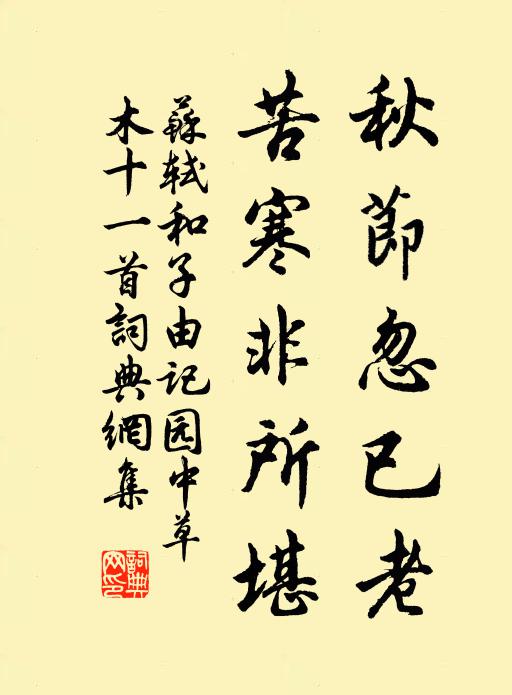 秋節忽已老
苦寒非所堪
蘇軾和子由记园中草
木十一首詞典網集
詞典
网印